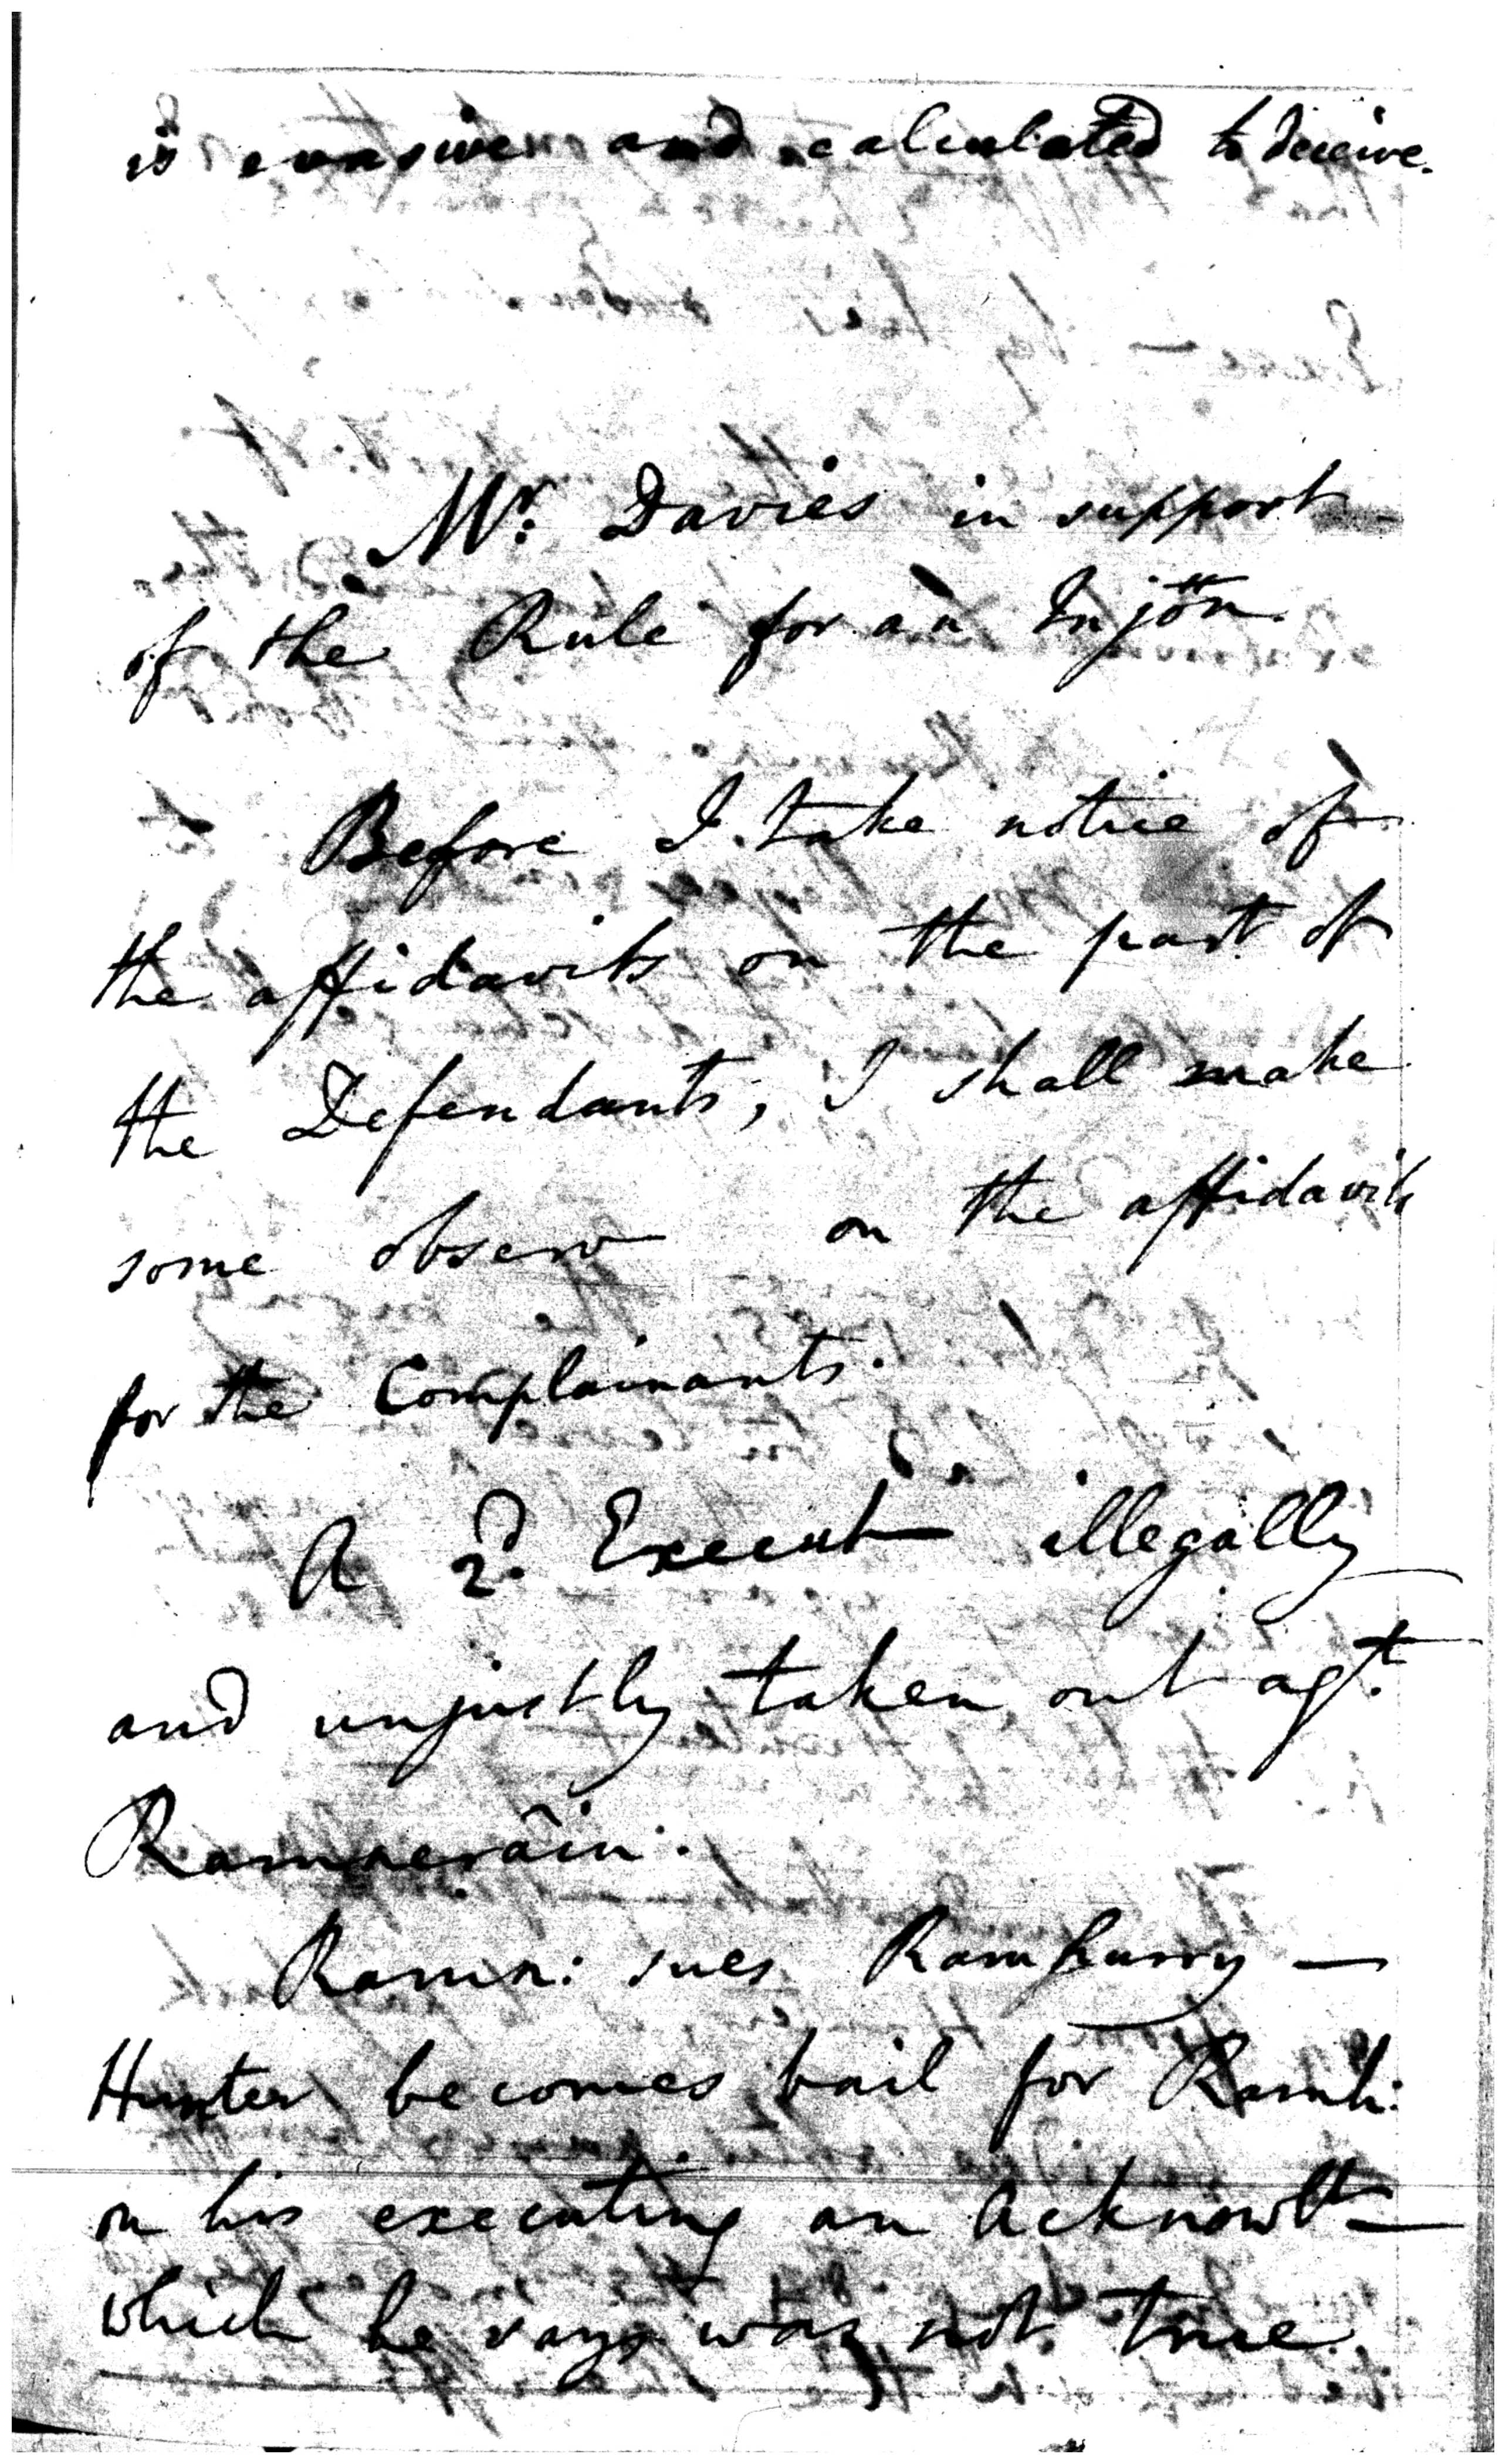 is evasive and calculated to deceive.
Mr. Davies in support
of the Rule for an Injõn
Before I take notice of
the affidavits on the part of
the Defendants, I shall make
some observ on the affidavits
for the Complainants.
A 2d. Execut illegally
and unjustly taken out agt.
Ramnerain.
Ramn: sues Ramhurry —
Hunter becomes bail for Ramh:
on his executing an acknowlt —
which he says was not true.